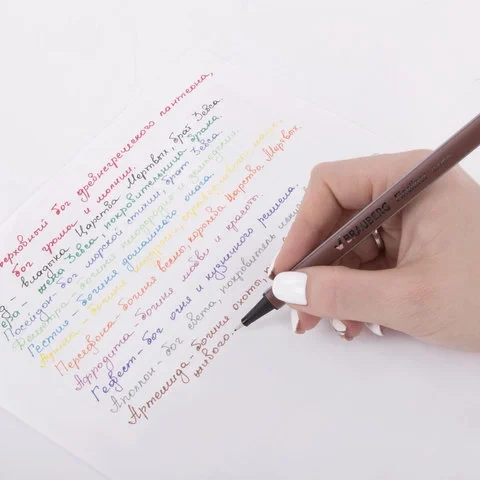 верховный бог древнегреческого пантеона,
бог грома и молнии.
владыка Царства Мертвых, брат Зевса.
жена Зевса, покровительница брака.
Посейдон - бог морской стихии, брат Зевса.
Деметра - богиня плодородия и земледелия.
Гестия - богиня домашнего очага.
Афина - богиня мудрости,
Персефона - богиня весны, королева Царства Мертвых
Афродита - богиня любви и красоты.
Гефест - бог огня и кузнечного ремесла.
Аполлон - бог света, покровитель
Артемида - богиня охоты,
живого.